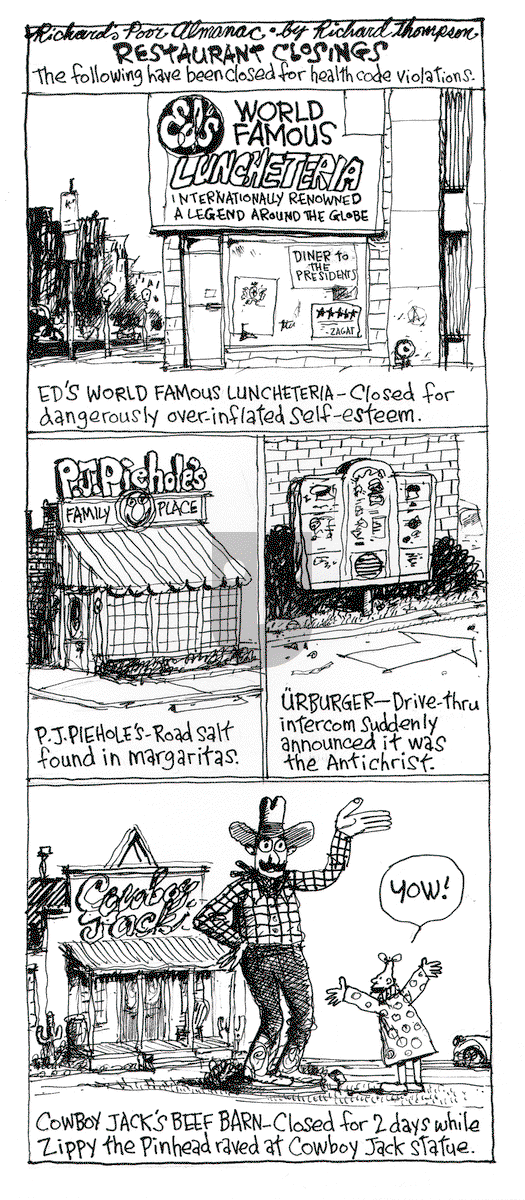 Richard's Poor Almanac • by Richard Thompson
RESTAURANT CLOSINGS
The following have been closed for health code violations.
Ed's
WORLD
FAMOUS
LUNCHETERIA
INTERNATIONALLY RENOWNED
A LEGEND AROUND THE GLOBE
DINER to
THE
PRESIDENTS
★★★★★
-ZAGAT
ED'S WORLD FAMOUS LUNCHETERIA-Closed for
dangerously over-inflated self-esteem.
P.J. Piehole's
FAMILY PLACE
P.J. PIEHOLE'S-Road salt
found in margaritas.
ÜRBURGER—Drive-thru
intercom suddenly
announced it was
the Antichrist.
Cowboy
Jack's
YOW!
COWBOY JACK'S BEEF BARN-Closed for 2 days while
Zippy the Pinhead raved at Cowboy Jack statue.